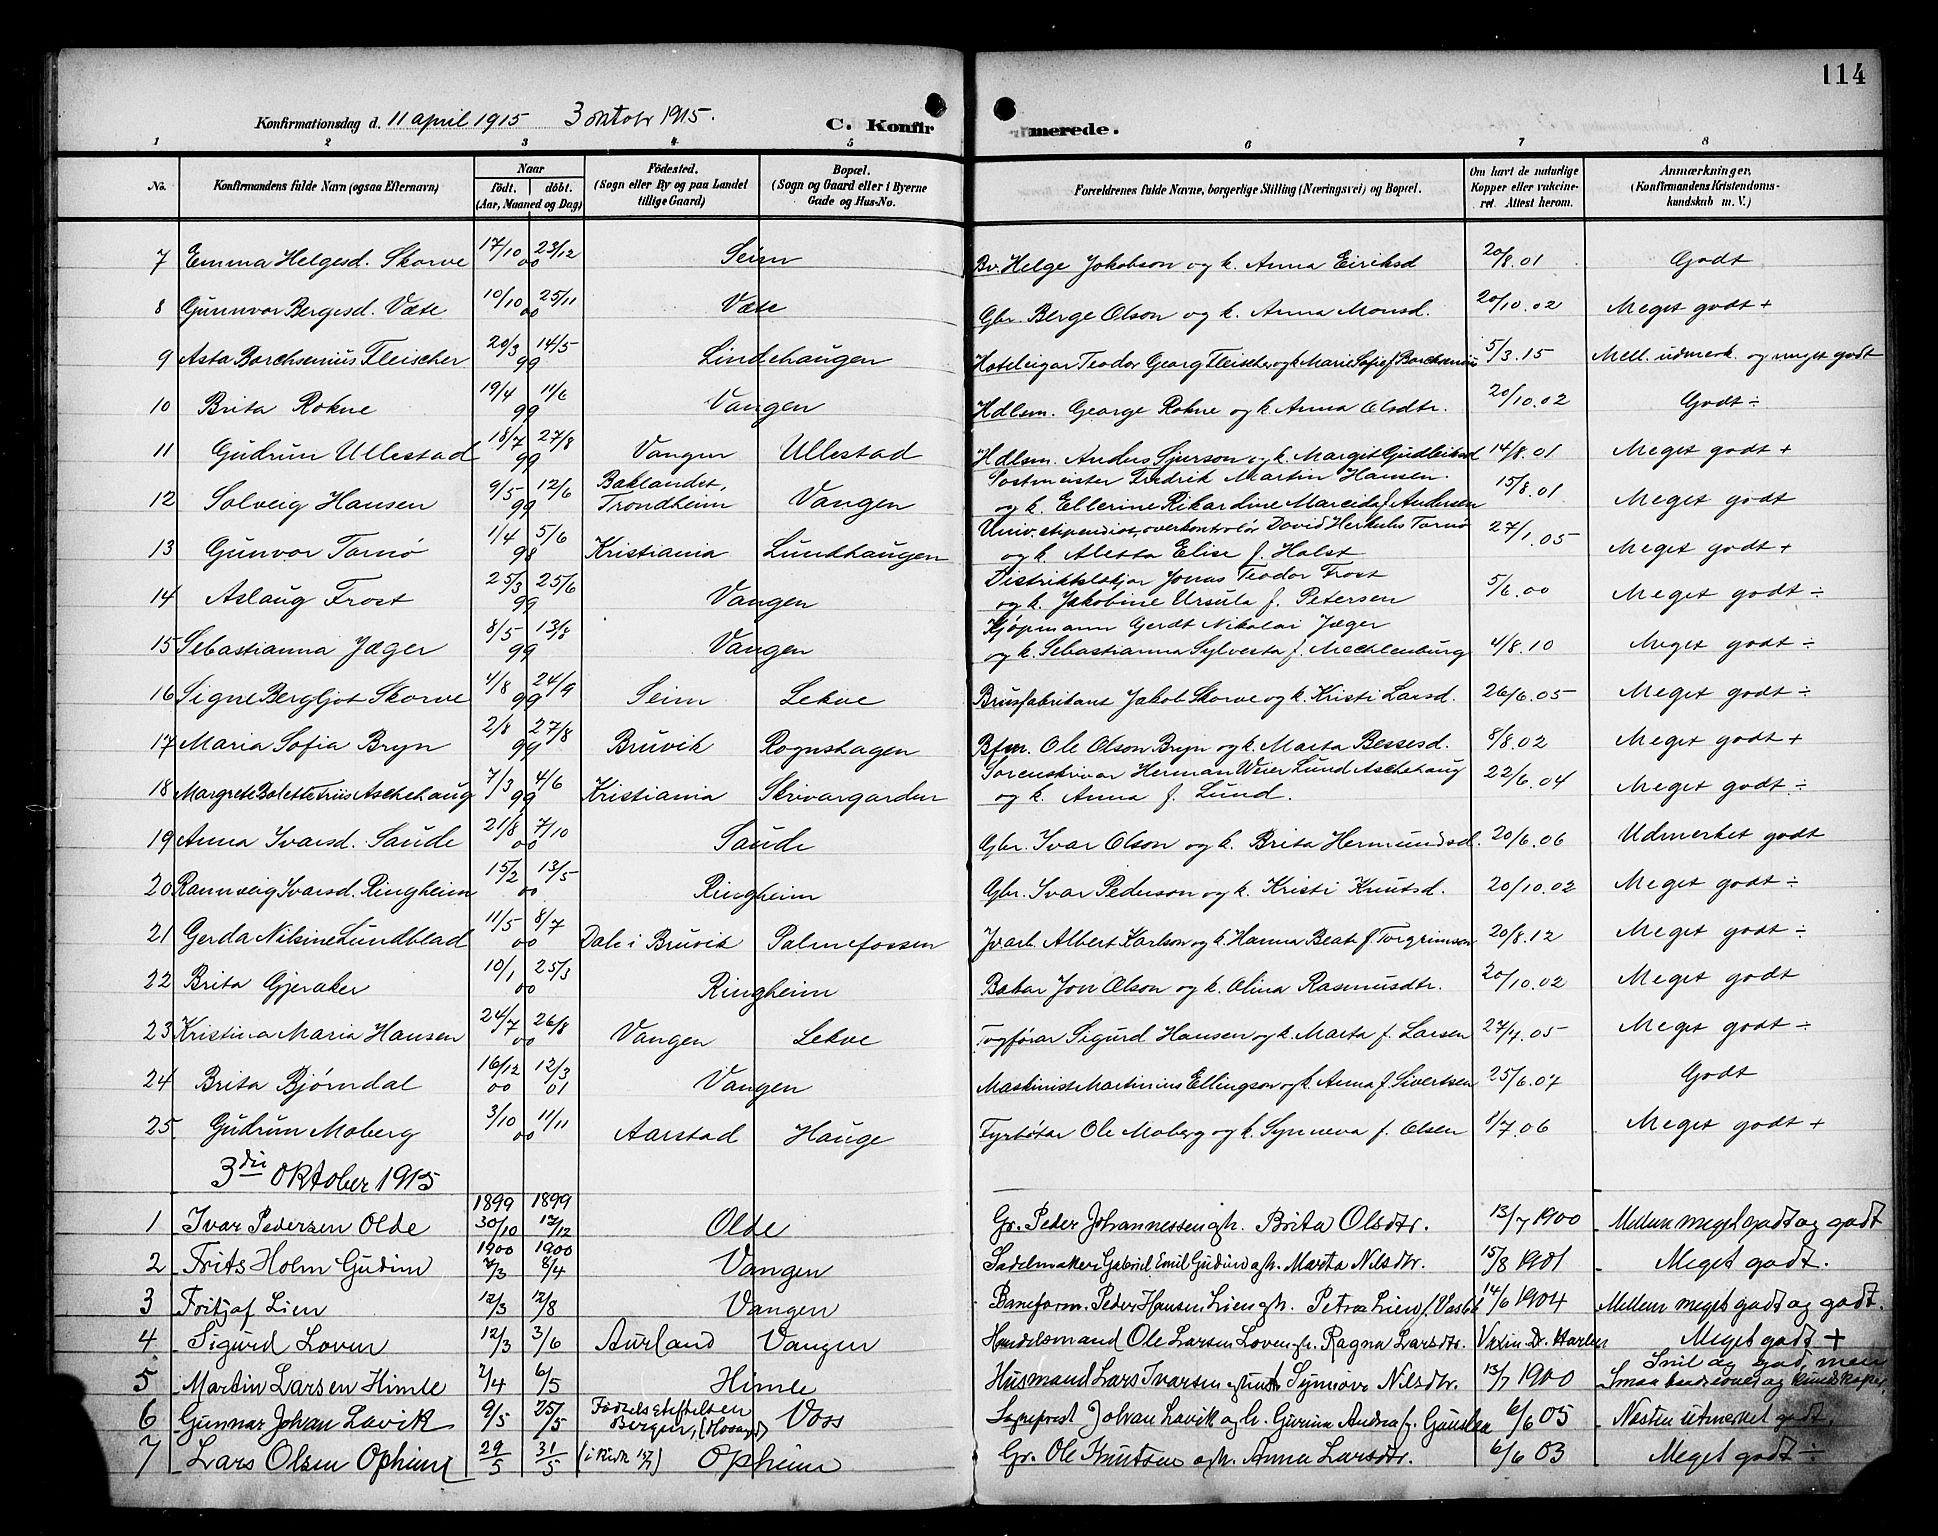 114
Konfirmationsdag d. 11 april 1915 3 oktobr 1915.
C. Konfirmerede.
1 2 3 4 5 6 7 8
No. Konfirmandens fulde Navn (ogsaa Efternavn) Naar født. døbt. (Aar, Maaned og Dag) Fødested. (Sogn eller By og paa Landet tillige Gaard) Bopæl. (Sogn og Gaard eller i Byerne Gade og Hus-No. Forældrenes fulde Navne, borgerlige Stilling (Næringsvei) og Bopæl. Om havt de naturlige Kopper eller vakcineret. Attest herom. Anmærkninger, (Konfirmandens Kristendomskundskab m. V.)
7 Emma Helgesd. Skorve 17/10 23/12 00 Seim Bv. Helge Jakobson og k. Anna Eiriksd 20/8.01 Godt
8 Gunnvor Bergesd. Væte 10/10 25/11 00 Væte Gbr. Berge Olson og k. Anna Monsd. 20/10.02 Meget godt +
9 Asta Borchsenius Fleischer 20/3 14/5 99 Lindehaugen Hoteleigar Teodor Georg Fleischer og k. Marie Sofie f. Borchsenius 5/3.15 Mell. udmerk. og meget godt
10 Brita Rokne 19/4 11/6 99 Vangen Hdlsm. George Rokne og k. Anna Olsdtr. 20/10.02 Godt ÷
11 Gudrun Ullestad 18/7 27/8 99 Vangen Ullestad Hdlsm. Anders Sjurson og k. Margit Gudleiksd 14/8.01 Meget godt +
12 Solveig Hansen 9/5 12/6 99 Baklandet, Trondheim Vangen Postmeister Fredrik Martin Hansen og k. Ellerine Rikardine Mareida f. Andersen 15/8.01 Meget godt
13 Gunvor Tornø 1/4 5/6 98 Kristiania Lundhaugen Univ. stipendiat, overkontrolør David Herkuls Tornø og k. Aletta Elise f. Holst 27/1.05 Meget godt +
14 Aslaug Frost 25/3 25/6 99 Vangen Distriktslækjar Jonas Teodor Frost og k. Jakobine Ursula f. Petersen 5/6.00 Meget godt ÷
15 Sebastianna Jæger 8/5 13/8 99 Vangen Kjøpmann Gerdt Nikolai Jæger og k. Sebastianna Sylvesta f. Mechlenburg 4/8.10 Meget godt ÷
16 Signe Bergljot Skorve 4/8 24/9 99 Seim Lekve Brusfabrikant Jakob Skorve og k. Kristi Larsd. 26/6.05 Meget godt ÷
17 Maria Sofia Bryn 2/8 27/8 99 Bruvik Rognshagen Bfm. Ole Olson Bryn og k. Marta Bessesd. 8/8.02 Meget godt +
18 Margrete Bolette Friis Aschehaug 7/3 4/6 99 Kristiania Skrivargarden Sorenskrivar Herman Weier Lund Aschehaug og k. Anna f. Lund. 22/6.04 Meget godt ÷
19 Anna Ivarsd. Saude 21/8 7/10 00 Saude Gbr. Ivar Olson og k. Brita Hermundsd. 20/6.06 Udmerket godt
20 Rannveig Ivarsd. Ringheim 15/2 13/5 00 Ringheim Gbr. Ivar Pederson og k. Kristi Knutsd. 20/10.02 Meget godt ÷
21 Gerda Nilsine Lundblad 11/5 8/7 00 Dale i Bruvik Palmefossen Jvarb. Albert Karlson og k. Hanna Beate f. Torgrimson 20/8.12 Meget godt ÷
22 Brita Gjeraker 10/1 25/3 00 Ringheim Bakar Jon Olson og k. Olina Rasmusdtr. 20/10.02 Meget godt
23 Kristina Maria Hansen 24/7 26/8 00 Vangen Lekve Togførar Sigurd Hansen og k. Marta f. Larsen 27/4.05 Meget godt ÷
24 Brita Bjørndal 16/12 00 12/3 01 Vangen Maskinist Martinius Ellingson og k. Anna f. Sivertsen 25/6.07 Godt
25 Gudrun Moberg 3/10 11/11 00 Aarstad Hauge Fyrbøtar Ole Moberg og k. Synneva f. Olsen 1/7.06 Meget godt +
3die oktober 1915
1 Ivar Pedersen Olde 1899 30/10 1899 17/12 Olde Gr. Peder Johannessen og h. Brita Olsdtr. 13/7 1900 Mellem meget godt og godt
2 Frits Holm Gudim 1900 7/3 1900 8/4 Vangen Sadelmaker Gabriel Emil Gudim og h. Marta Nilsdtr. 15/8 1901 Meget godt.
3 Fritjof Lien 12/3 12/8 Vangen Baneform. Peder Hansen Lien og h. Petra Lien f. 14/6 1904 Mellem meget godt og godt.
4 Sigurd Loven 12/3 3/6 Aurland Vangen Handelsmand Ole Larsen Loven og h. Ragna Larsdtr. Vaxin. Dr. Meget godt +
5 Martin Larsen Himle 2/4 6/5 Himle Husmand Lars Ivarsen og hust. Synnøve Nilsdtr. 13/7 1900 Snil og god, men smaa kundskaper.
6 Gunnar Johan Lavik 9/5 25/5 Fødselsstiftelsen Bergen, Voss Sogneprest Johan Lavik og h. Gurina Andrea f. 6/6 05 Næsten utmerket godt.
7 Lars Olsen Opheim 29/5 31/5 (i kirk 15/7) Opheim Gr. Ole Knutsen og h. Anna Larsdtr. 6/6 03 Meget godt ÷